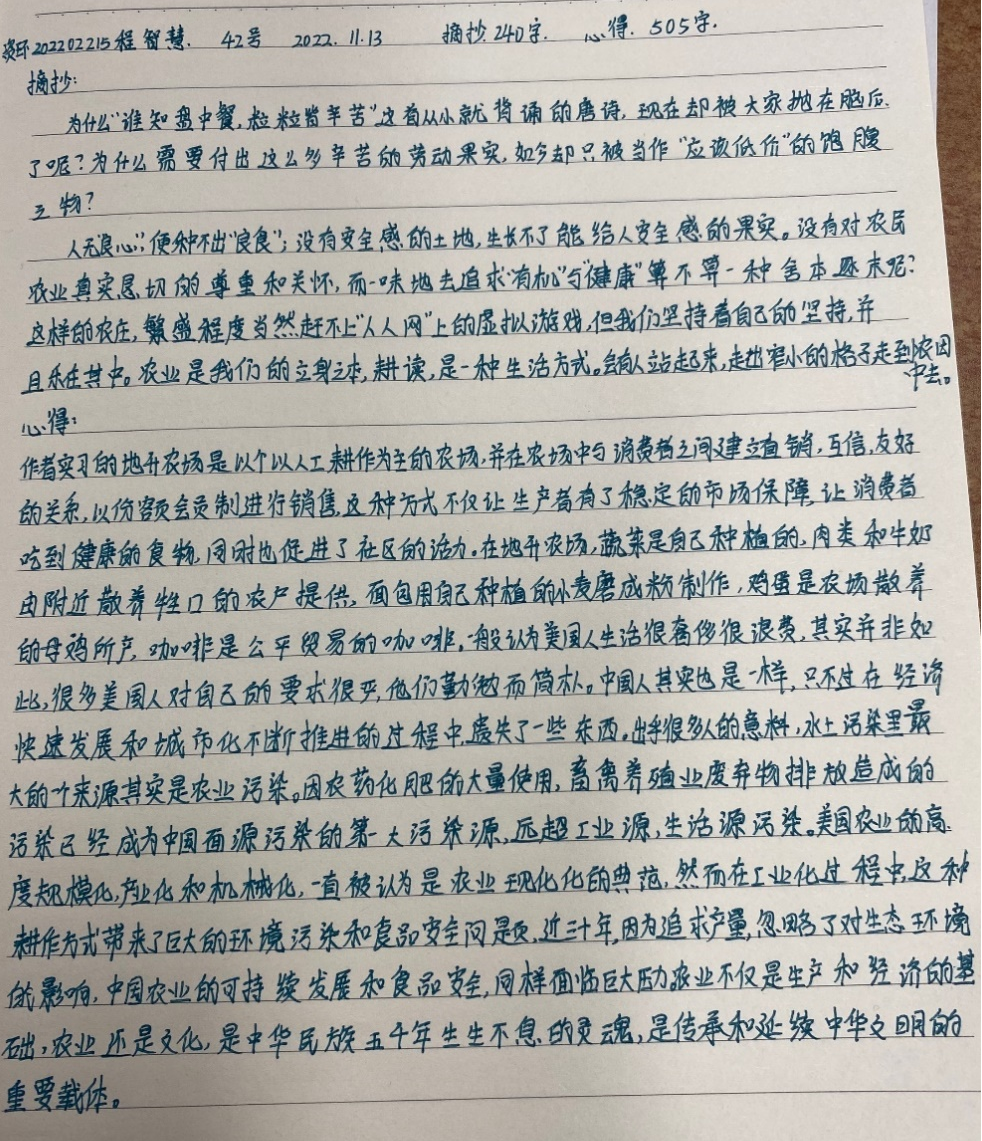 资环202202215程智慧. 42号 2022.11.13 摘抄240字. 心得.505字.
摘抄:
为什么"谁知盘中餐,粒粒皆辛苦"这首从小就背诵的唐诗,现在却被大家抛在脑后.
了呢?为什么需要付出这么多辛苦的劳动果实,如今却只被当作"应该低价"的饱腹
之物?
人无"良心",便种不出"良食";没有安全感的土地,生长不了能给人安全感的果实。没有对农民
农业真实恳切的尊重和关怀,而一味地去追求"有机"与"健康"算不算一种舍本逐末呢?
这样的农庄,繁盛程度当然赶不上"人人网"上的虚拟游戏,但我们坚持着自己的坚持,并
且乐在其中。农业是我们的立身之本,耕读,是一种生活方式。会有人站起来,走出窄小的格子走到农田
中去。
心得:
作者实习的地升农场是以个以人工耕作为主的农场,并在农场中与消费者之间建立直销,互信,友好
的关系,以份额会员制进行销售,这种方式不仅让生产者有了稳定的市场保障,让消费者
吃到健康的食物,同时也促进了社区的活力.在地升农场,蔬菜是自己种植的,肉类和牛奶
由附近散养牲口的农户提供,面包用自己种植的小麦磨成粉制作,鸡蛋是农场散养
的母鸡所产,咖啡是公平贸易的咖啡.一般认为美国人生活很奢侈很浪费,其实并非如
此,很多美国人对自己的要求很严,他们勤勉而简朴。中国人其实也是一样,只不过在经济
快速发展和城市化不断推进的过程中,遗失了一些东西.出乎很多人的意料,水土污染里最
大的一个来源其实是农业污染。因农药化肥的大量使用,畜禽养殖业废弃物排放造成的
污染已经成为中国面源污染的第一大污染源,远超工业源,生活源污染。美国农业的高
度规模化,产业化和机械化,一直被认为是农业现化化的典范,然而在工业化过程中,这种
耕作方式带来了巨大的环境污染和食品安全问题,近三十年,因为追求产量,忽略了对生态环境
的影响,中国农业的可持续发展和食品安全,同样面临巨大压力.农业不仅是生产和经济的基
础,农业还是文化,是中华民族五千年生生不息的灵魂,是传承和延续中华文明的
重要载体。